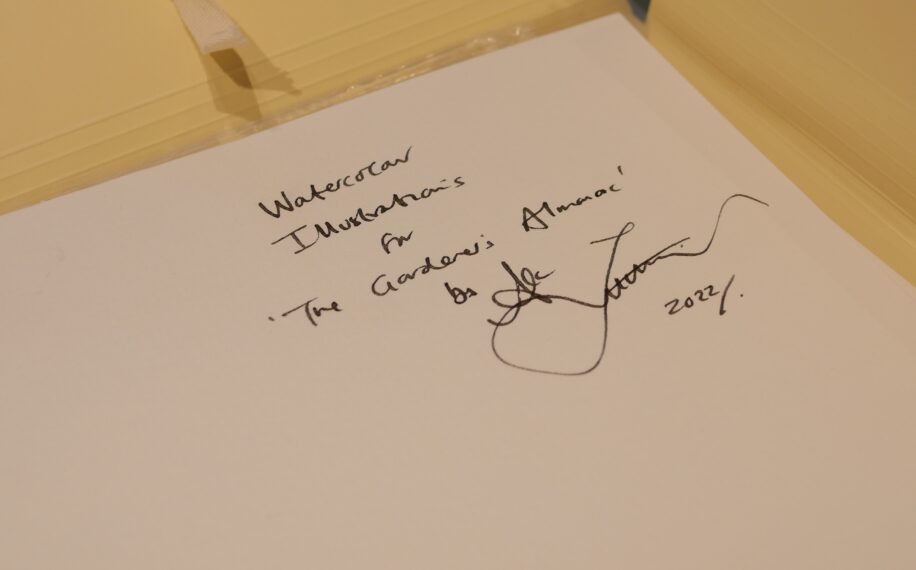 Watercolour
Illustrations
for
'The Gardener's Almanac'
by
2022/.